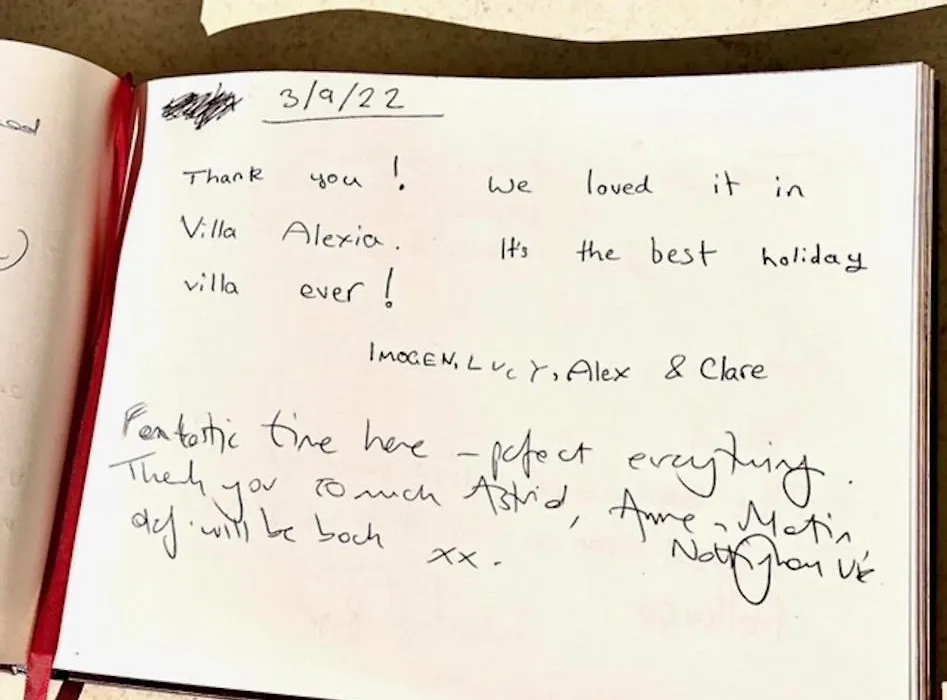 3/9/22
Thank you! We loved it in
Villa Alexia. It's the best holiday
villa ever!
IMOGEN, LUCY, Alex & Clare
Fantastic time here - pefect everything.
Thank you so much Astrid, Anne, Matin
def. will be back xx.
Nottingham UK